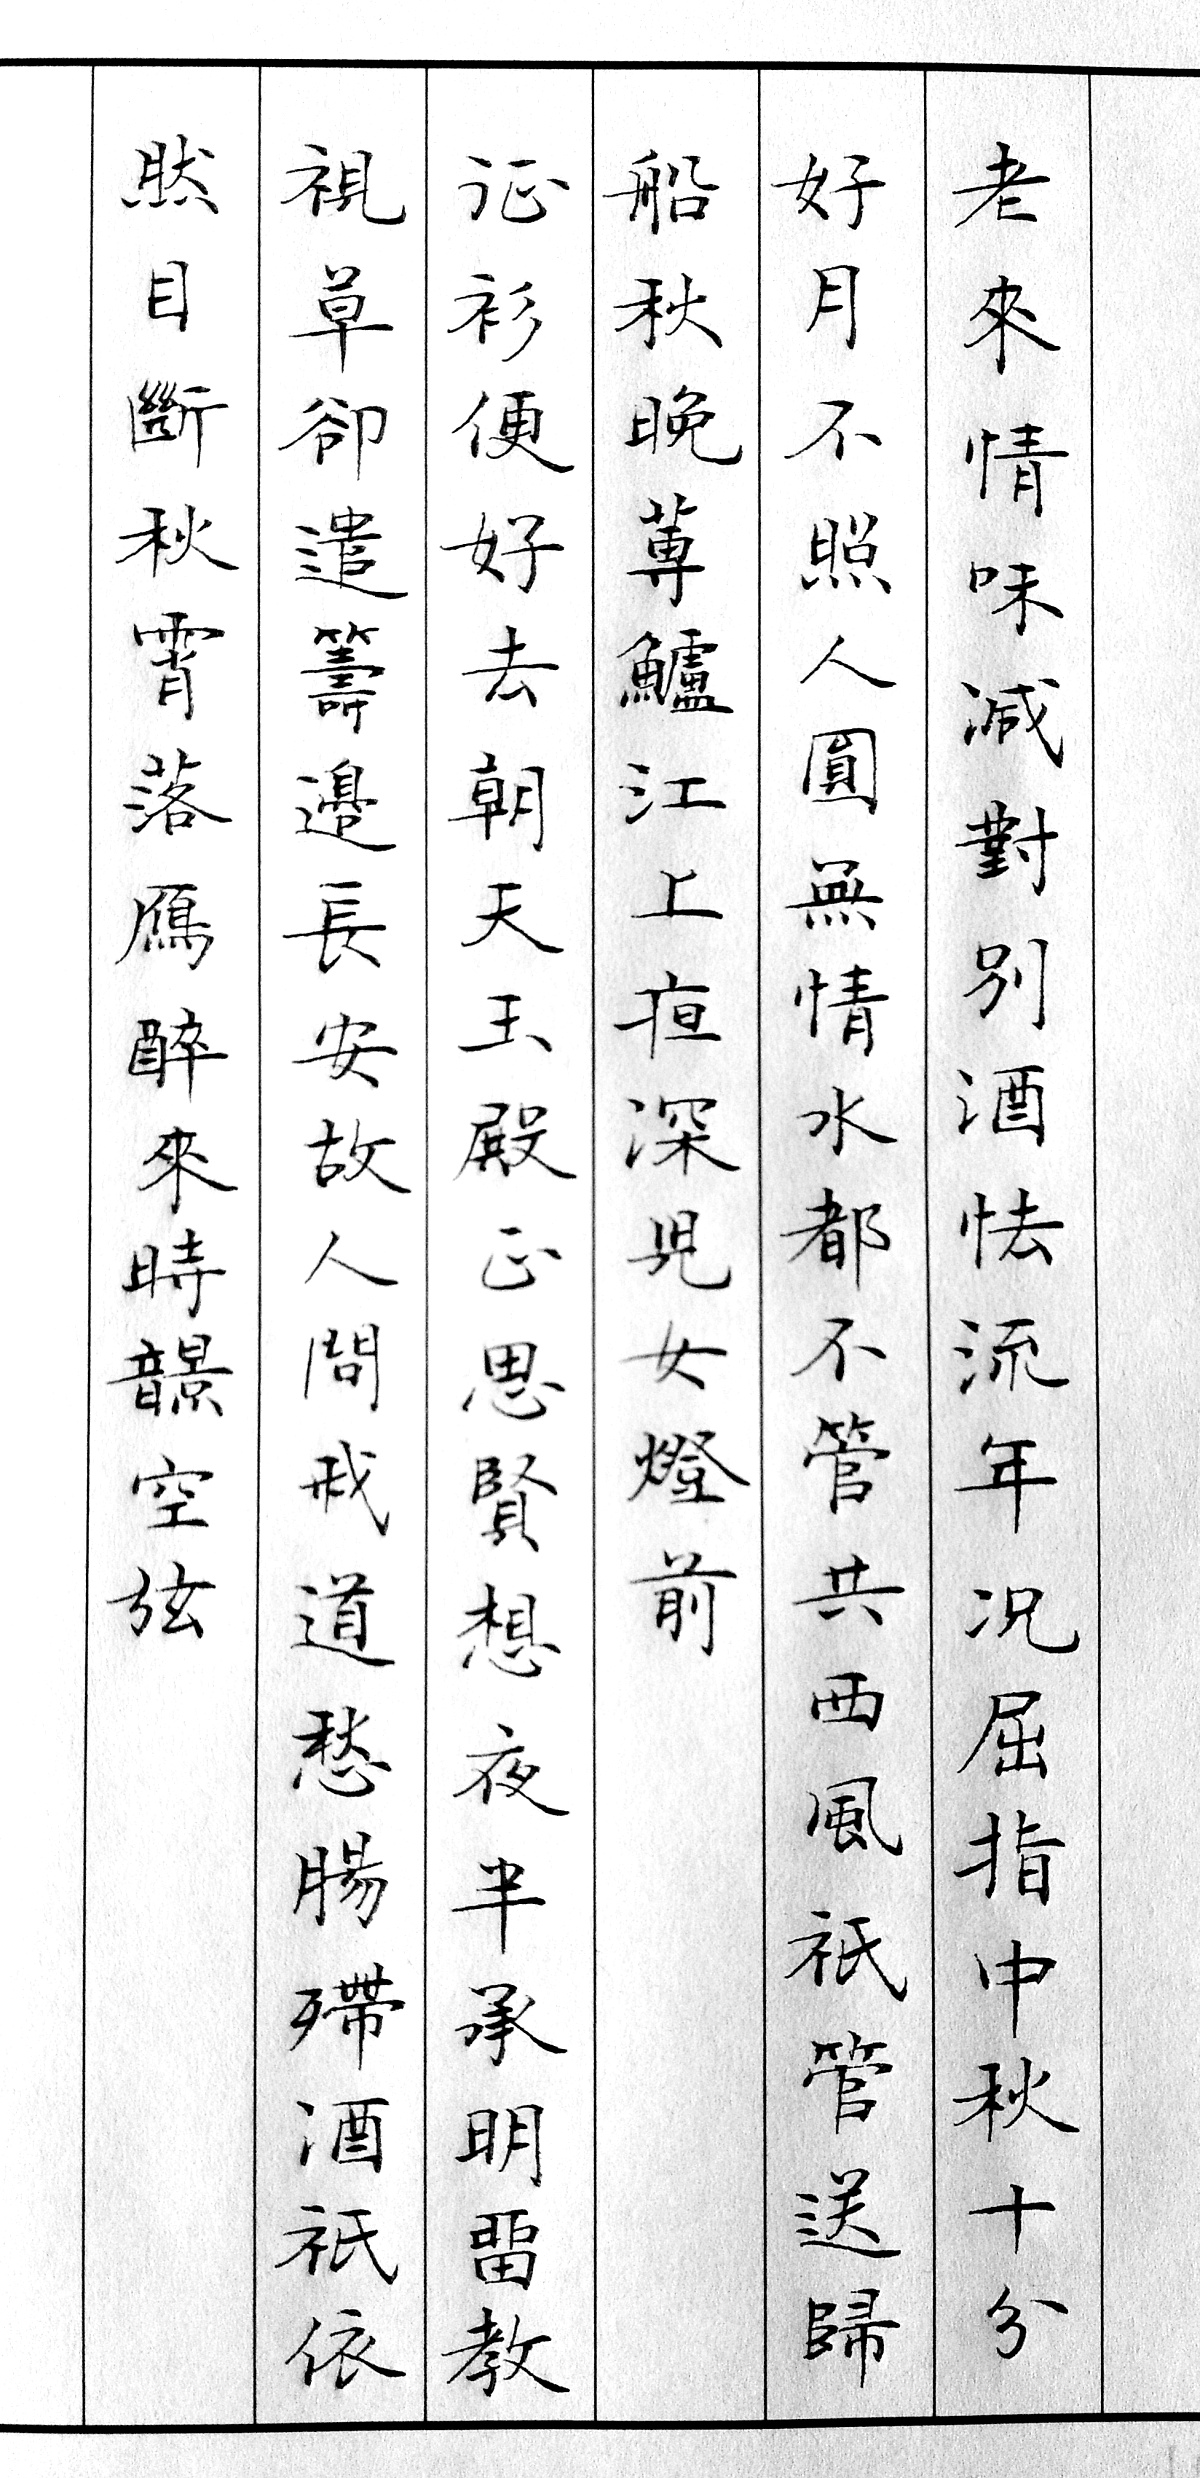 老來情味減對別酒怯流年況屈指中秋十分
好月不照人圓無情水都不管共西風祇管送歸
船秋晚蓴鱸江上夜深兒女燈前
征衫便好去朝天玉殿正思賢想夜半承明留教
視草卻遣籌邊長安故人問我道愁腸殢酒祇依
然目斷秋霄落雁醉來時響空弦